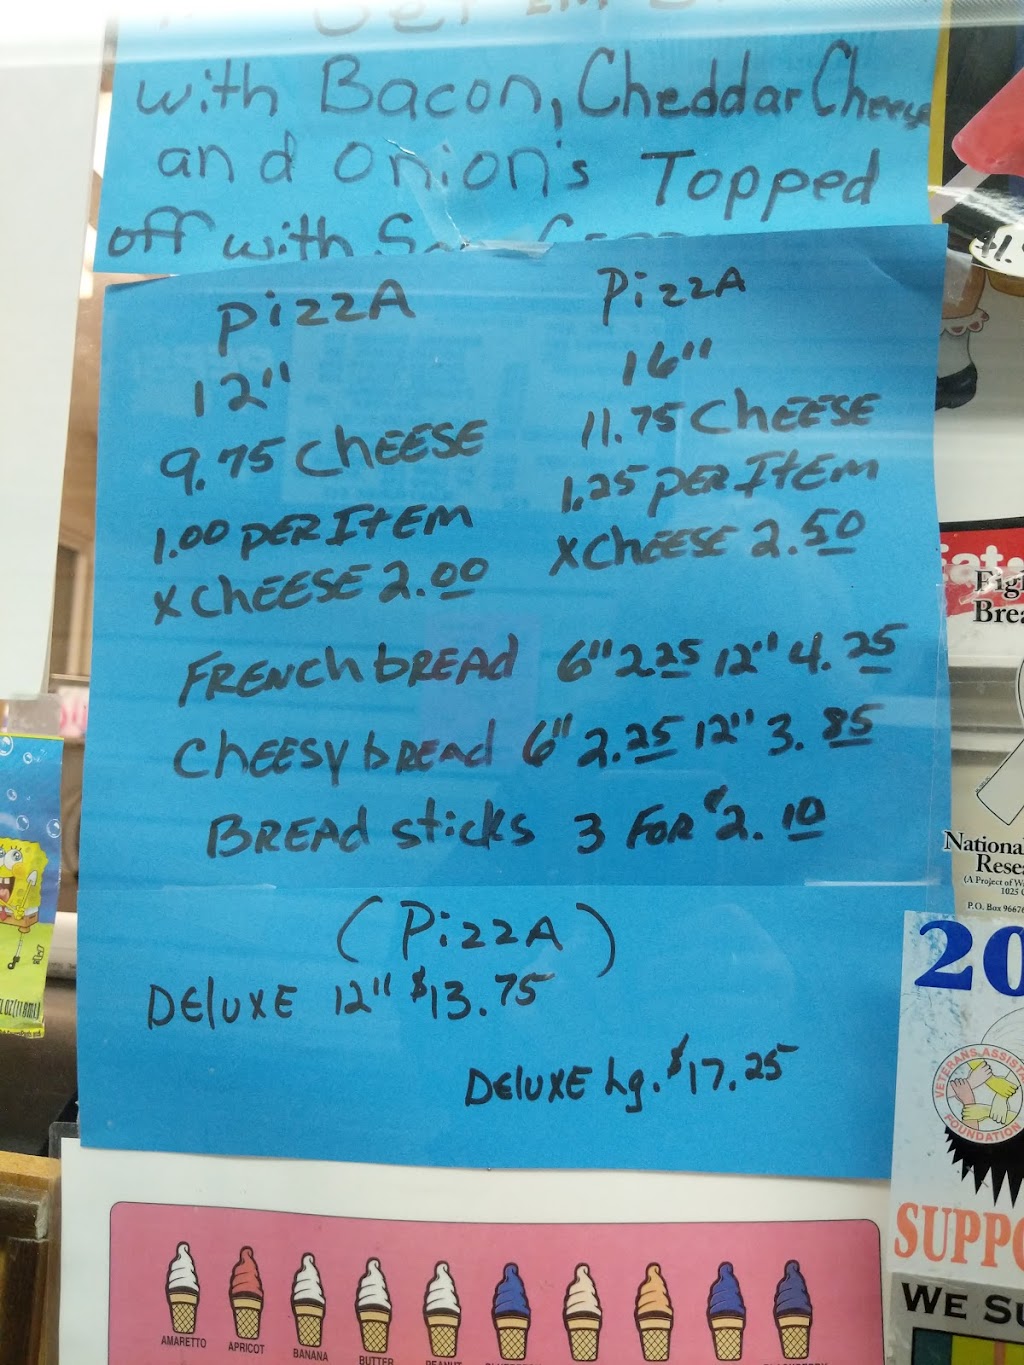 with Bacon, Cheddar Cheese
and onion's Topped
off with
PizzA
12"
9.75 CheESE
1.00 PER ItEM
X CheESE 2.00
PizzA
16"
11.75 CheESE
1.25 PER ItEM
X CheESE 2.50
FRENCh bREAD 6" 2.25 12" 4.25
CheESy bREAD 6" 2.25 12" 3.85
BREAD sticks 3 FOR $2.10
(PizzA)
DElUXE 12" $13.75
DElUXE Lg. $17.25
AMARETTO
APRICOT
BANANA
BUTTER
PEANUT
Figh
Brea
National
Resea
(A Project of W
1025 C
P.O. Box 9667
20
VETERANS ASSIST
FOUNDATION
SUPPO
WE SU